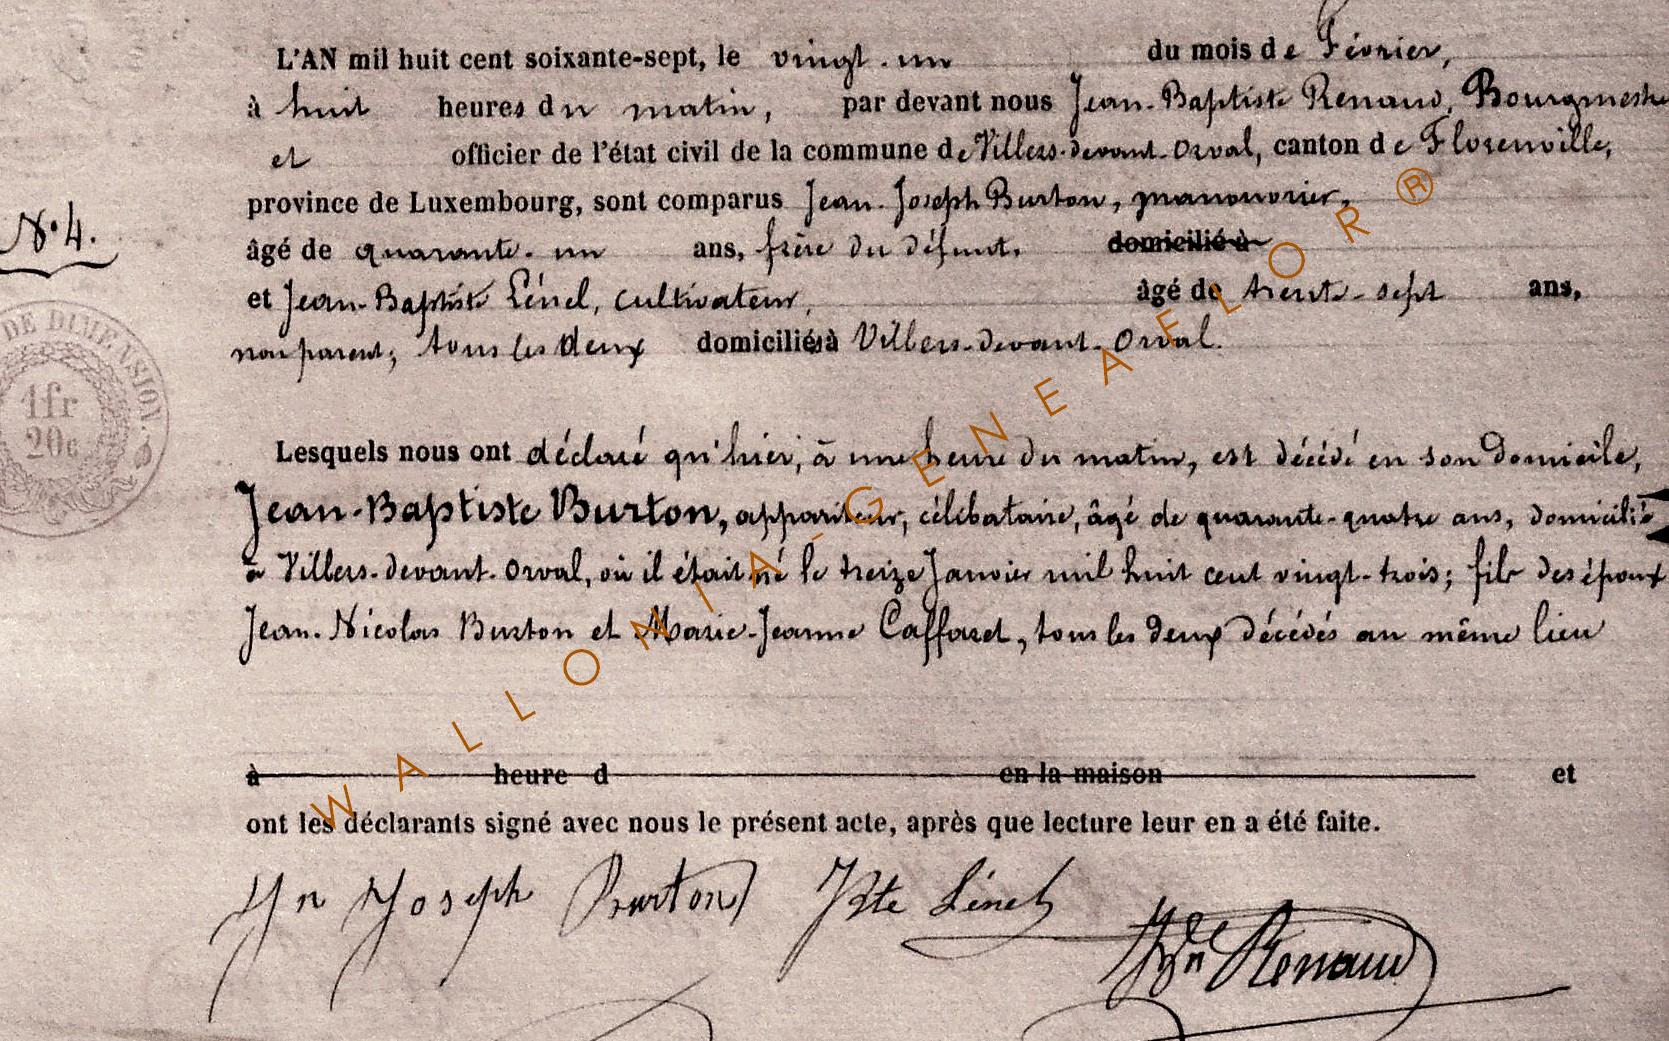 L'AN mil huit cent soixante-sept, le vingt-un du mois de Février,
à huit heures du matin, par devant nous Jean-Baptiste Renaud, Bourgmestre
et officier de l'état civil de la commune de Villers-devant-Orval, canton de Florenville,
province de Luxembourg, sont comparus Jean-Joseph Burton, manouvrier,
N° 4.
âgé de quarante-un ans, frère du défunt, domicilié à
et Jean-Baptiste Lénel, cultivateur, âgé de trente-sept ans,
non parent; tous les deux domiciliés à Villers-devant-Orval.
DE DIMENSION.
1fr
20c
Lesquels nous ont déclaré qu'hier, à une heure du matin, est décédé en son domicile,
Jean-Baptiste Burton, appariteur, célibataire, âgé de quarante-quatre ans, domicilié
à Villers-devant-Orval, où il était né le treize Janvier mil huit cent vingt-trois; fils des époux
Jean-Nicolas Burton et Marie-Jeanne Caffaret, tous les deux décédés au même lieu
à heure d en la maison et
ont les déclarants signé avec nous le présent acte, après que lecture leur en a été faite.
Jn Joseph Burton JBte Lénel Renaud
WALLONIA-GENEAFLOR®